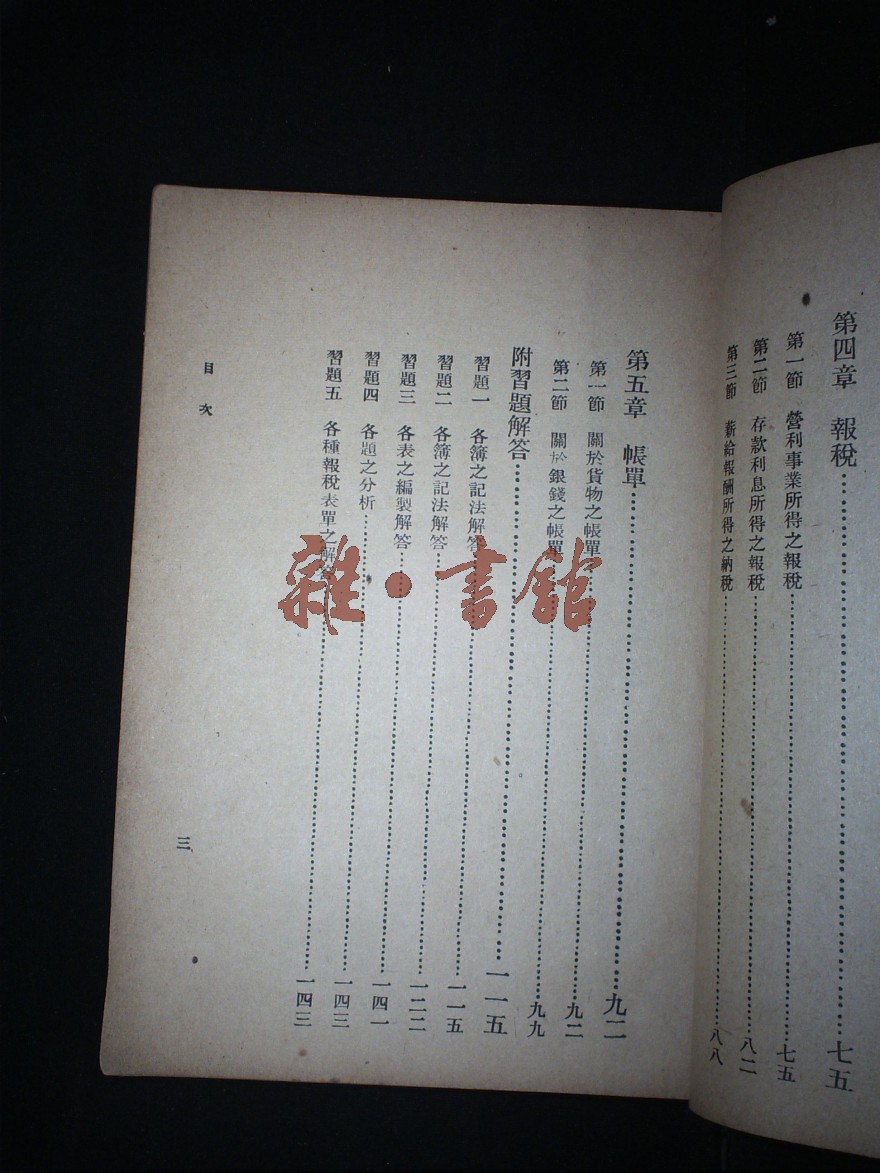 第四章　報稅……七五
第一節　營利事業所得之報稅……七五
第二節　存款利息所得之報稅……八二
第三節　薪給報酬所得之納稅……八八
第五章　帳單……九二
第一節　關於貨物之帳單……九二
第二節　關於銀錢之帳單……九九
附習題解答……一一五
習題一　各簿之記法解答……一一五
習題二　各簿之記法解答……一二二
習題三　各表之編製解答……一四一
習題四　各題之分析……一四三
習題五　各種報稅表單之解答……一四三
目次
三
雜·書館